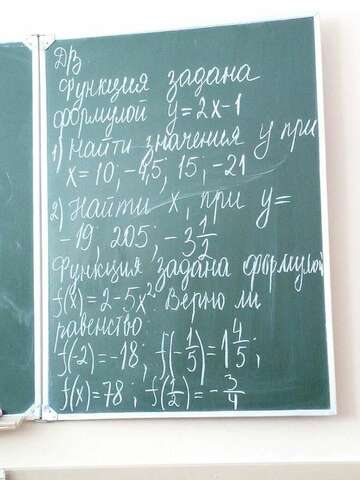 Д/З
Функция задана
формулой y=2x-1
1) Найти значения y при
x=10; -4,5; 15; -21
2) Найти x, при y=
-19; 205; -3 1/2
Функция задана формулой
f(x)=2-5x² Верно ли
равенство
f(-2)=-18; f(-1/5)=1 4/5;
f(x)=78; f(1/2)=-3/4